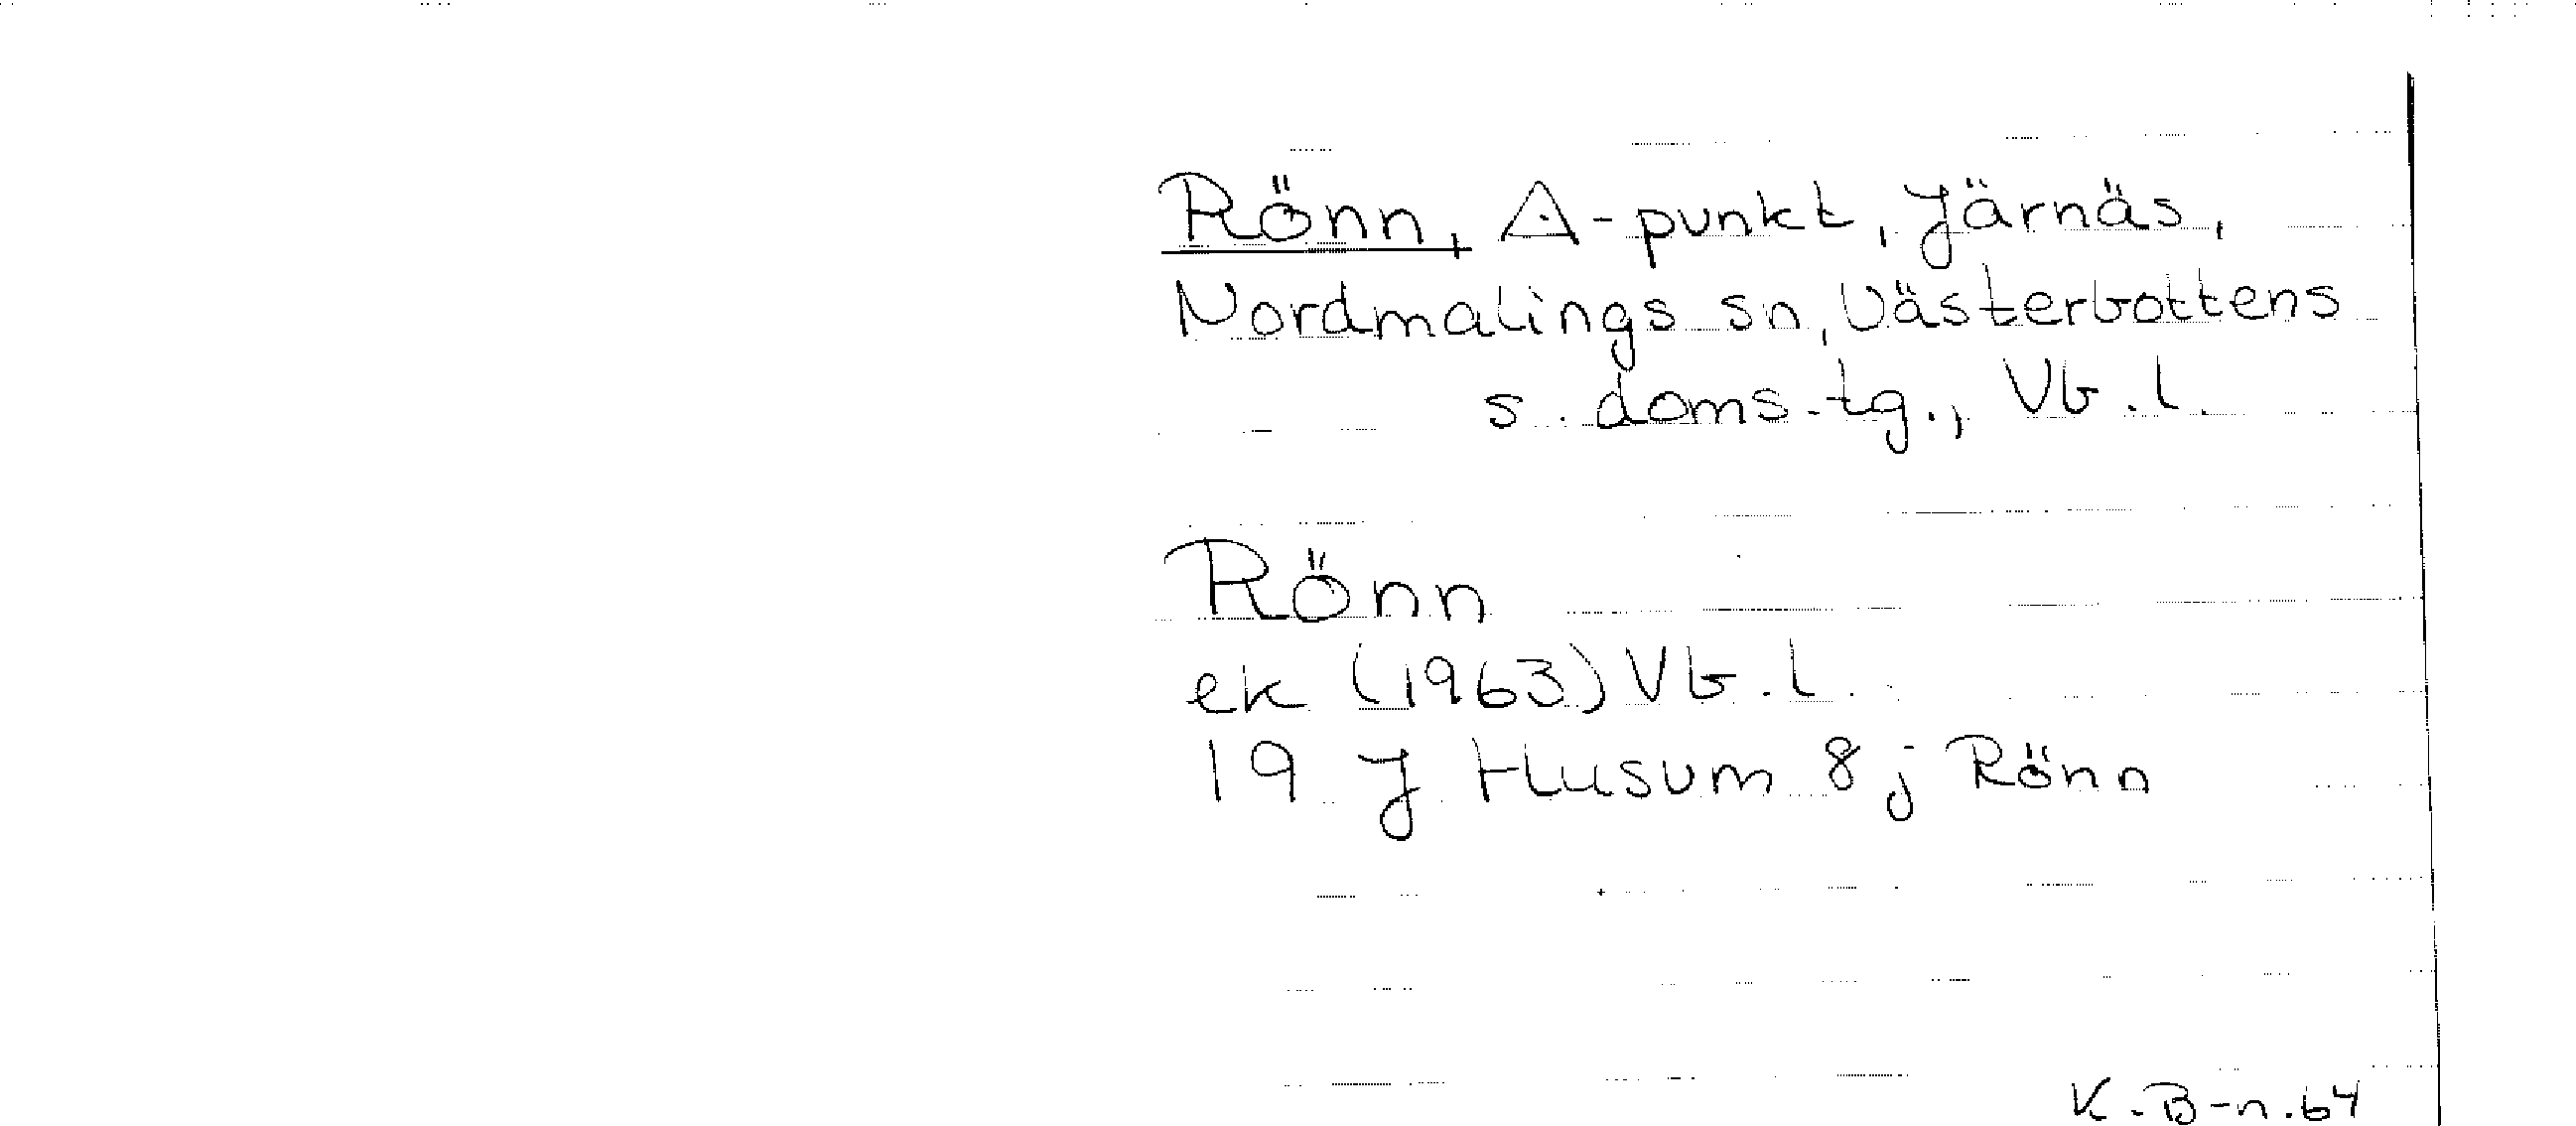 Rönn, △-punkt, Järnäs,
Nordmalings sn, Västerbottens
s. doms.tg., Vb.l.
Rönn
ek (1963) Vb.l.
19 J Husum 8 j Rönn
K.B-n.64